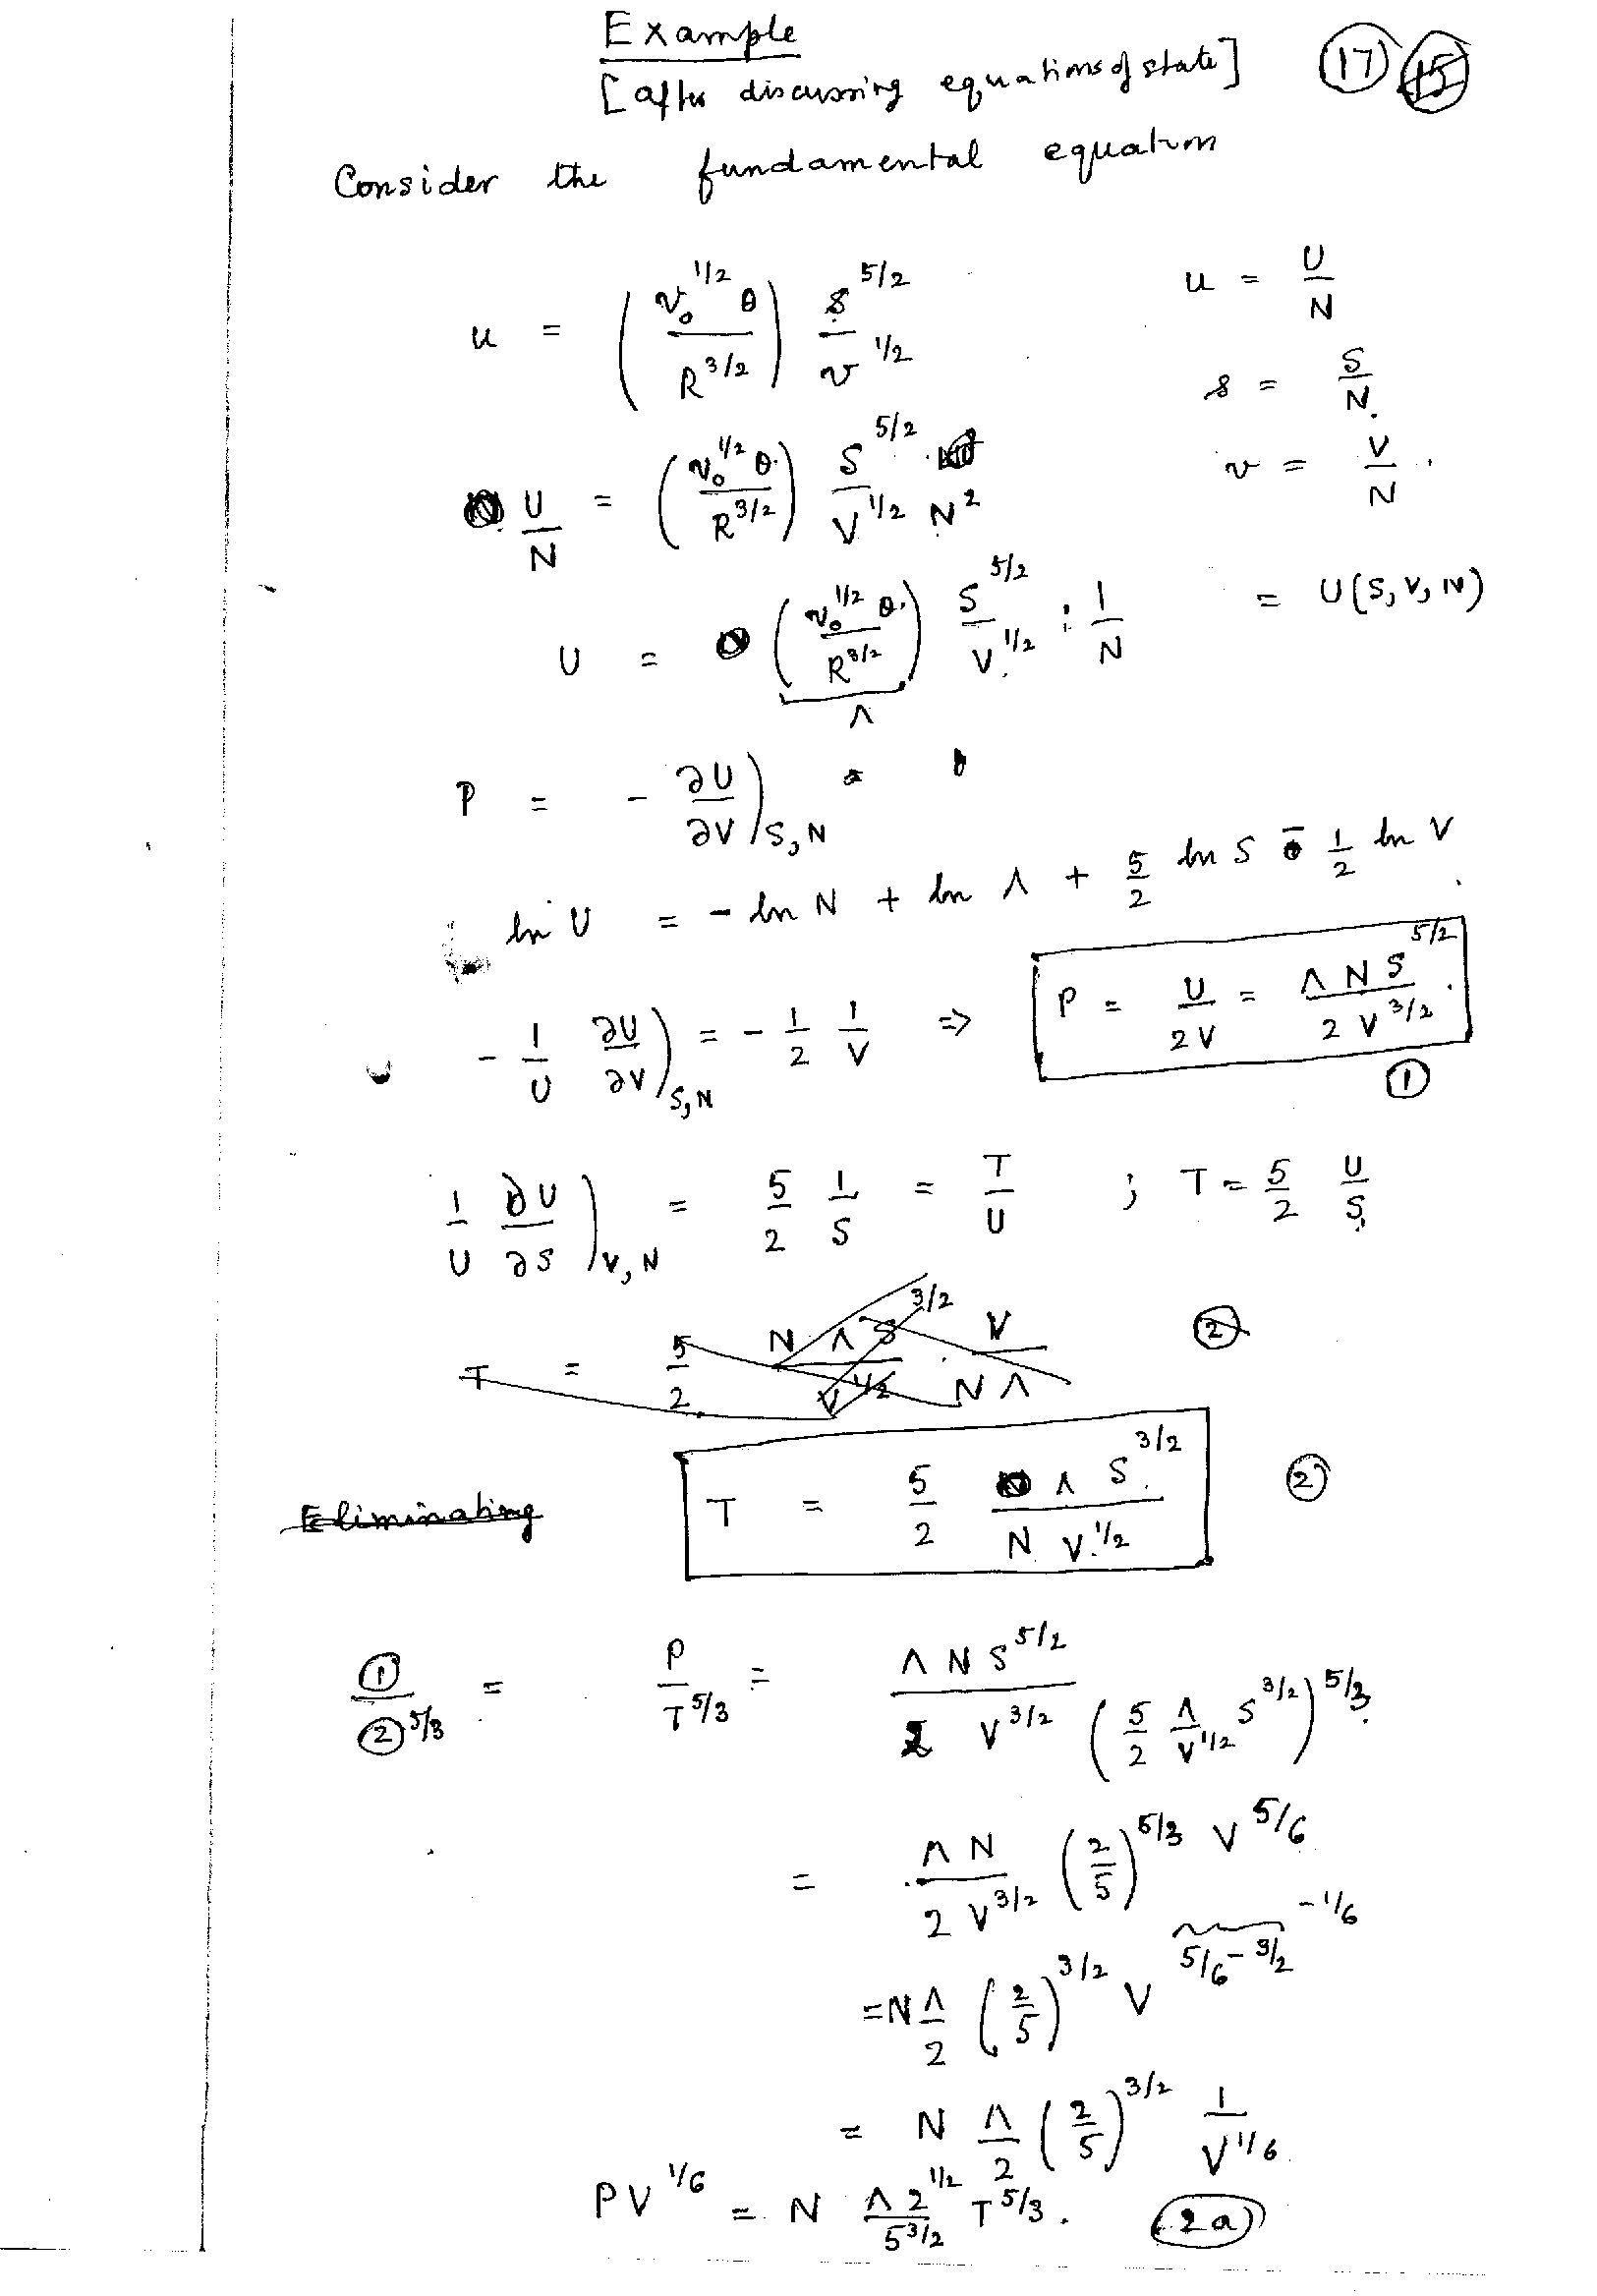 Example
[after discussing equations of state] (17) (15)
Consider the fundamental equation
u = (v₀^{1/2} θ / R^{3/2}) s^{5/2} / v^{1/2}    u = U/N
s = S/N
v = V/N
U/N = (v₀^{1/2} θ / R^{3/2}) S^{5/2} / (V^{1/2} N²)
U = (v₀^{1/2} θ / R^{3/2}) S^{5/2} / V^{1/2} : 1/N = U(S, V, N)
Λ
P = - ∂U/∂V)_{S,N} =
ln U = - ln N + ln Λ + 5/2 ln S - 1/2 ln V
- 1/U ∂U/∂V)_{S,N} = - 1/2 1/V ⇒ P = U/2V = Λ N S^{5/2} / 2 V^{3/2} .
(1)
1/U ∂U/∂S)_{V,N} = 5/2 1/S = T/U ; T = 5/2 U/S
T = 5/2 N Λ S^{3/2} / V^{1/2} · V / N Λ (2)
Eliminating T = 5/2 Λ S^{3/2} / N V^{1/2} (2)
(1) / (2)^{5/3} = P / T^{5/3} = Λ N S^{5/2} / 2 V^{3/2} (5/2 Λ/V^{1/2} S^{3/2})^{5/3}
= Λ N / 2 V^{3/2} (2/5)^{5/3} V^{5/6}
= N Λ/2 (2/5)^{3/2} V^{5/6 - 3/2} -1/6
= N Λ/2 (2/5)^{3/2} 1/V^{1/6}
P V^{1/6} = N Λ 2^{1/2} / 5^{3/2} T^{5/3} . (2a)